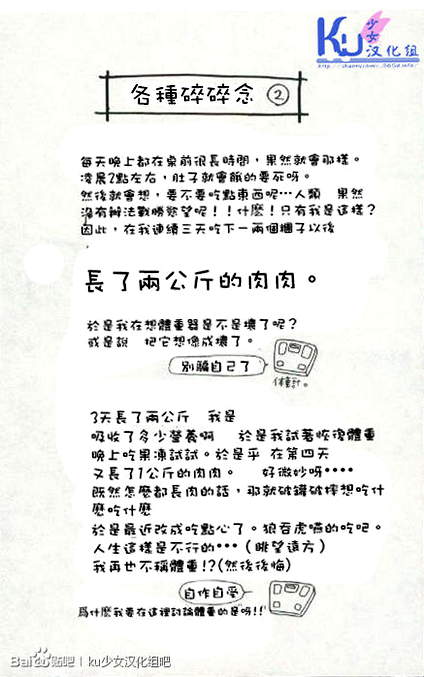 KU少女汉化组
各種碎碎念 ②
每天晚上都在桌前很長時間，果然就會那樣。
凌晨2點左右，肚子就會餓的要死呀。
然後就會想，要不要吃點東西呢…人類　果然
沒有辦法戰勝慾望呢！！什麽！只有我是這樣？
因此，在我連續三天吃下一兩個糰子以後
長了兩公斤的肉肉。
於是我在想體重器是不是壞了呢？
或是說　把它想像成壞了。
別騙自己了
体重計。
3天長了兩公斤　我是
吸收了多少營養啊　於是我試著恢復體重
晚上吃果凍試試。於是乎 在第四天
又長了1公斤的肉肉。　好微妙呀••••
既然怎麽都長肉的話，那就破罐破摔想吃什
麽吃什麽
於是最近改成吃點心了。狼吞虎嚥的吃吧。
人生這樣是不行的•••（眺望遠方）
我再也不稱體重!?(然後後悔)
自作自受
爲什麽我要在這裡討論體重的是呀!!
Bai du 贴吧 | ku少女汉化组吧